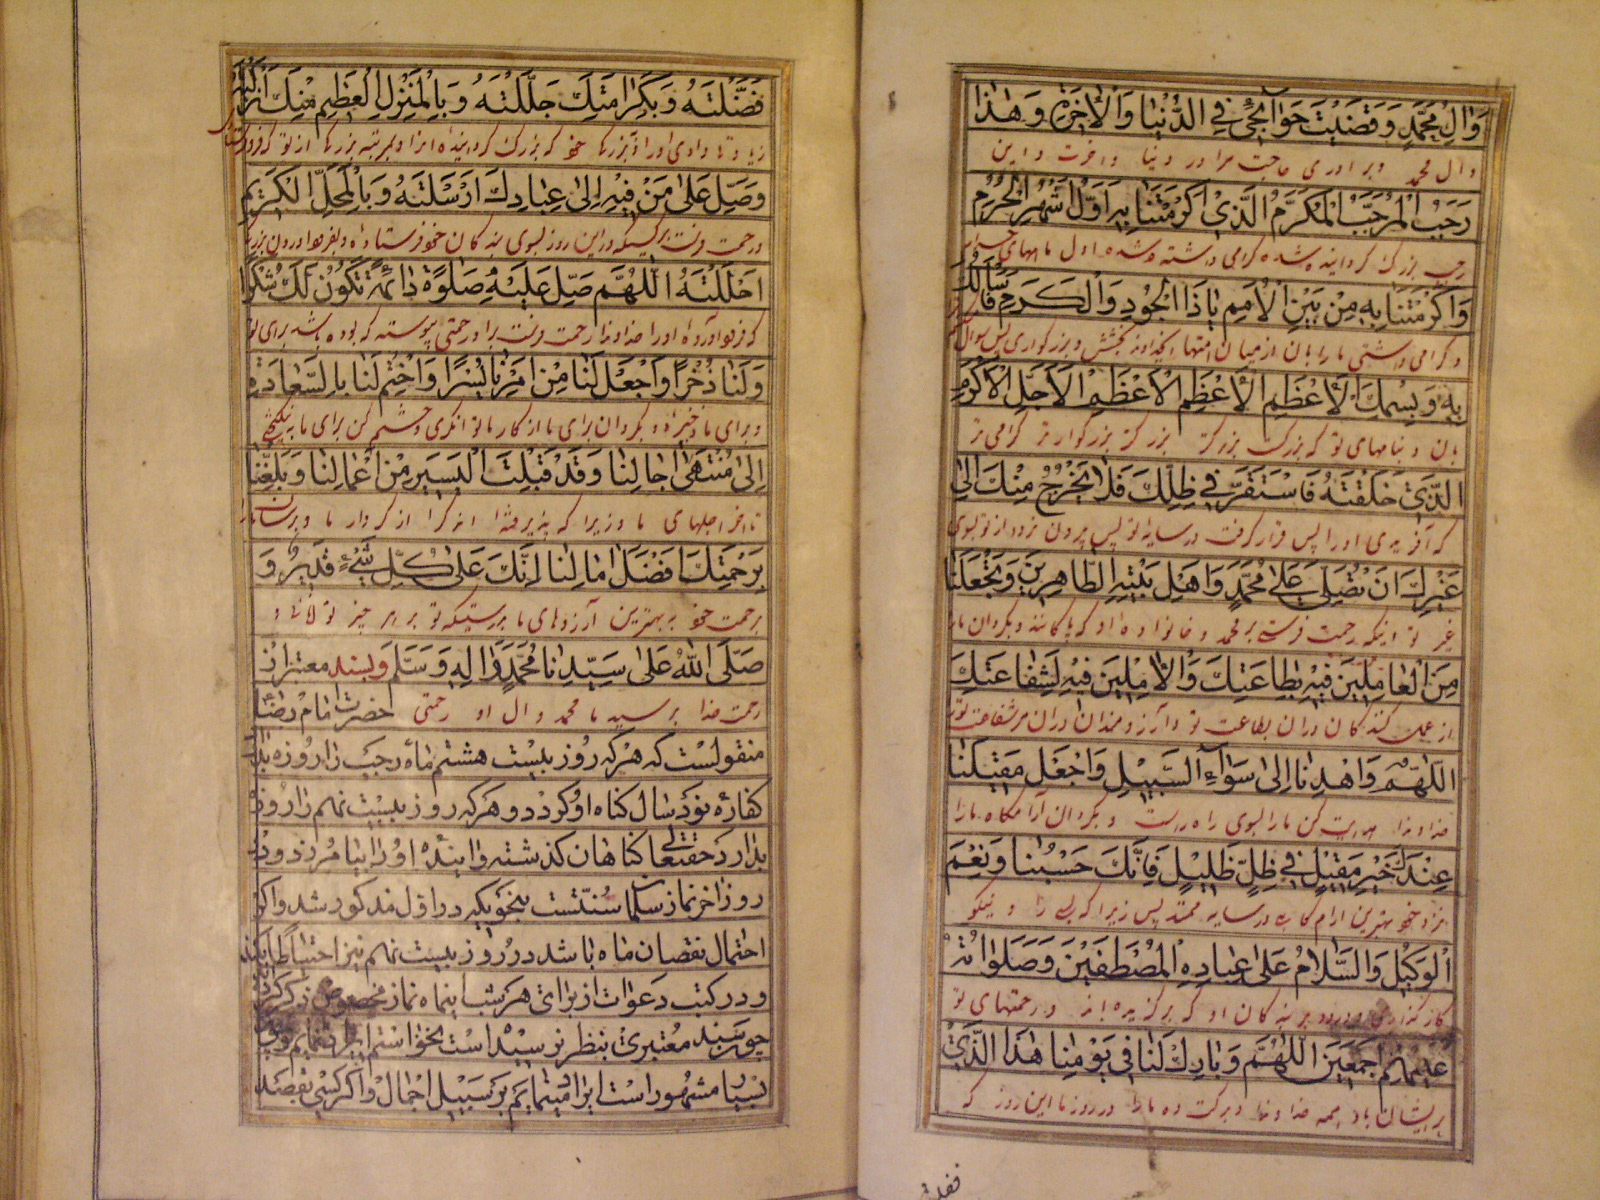 وَآلِ مُحَمَّدٍ وَقَضَيْتَ حَوَآئِجِي فِي الدُّنْيَا وَالْاٰخِرَةِ وَهٰذَا
وال محمد و براوری حاجت مرا در دنیا و اخرت و این
رَجَبُ الْمُرَجَّبُ الْمُكَرَّمُ الَّذِي اَكْرَمْتَنَا بِهِ اَوَّلُ اَشْهُرِ الْحُرُمِ
رجب بزرک کردانیده شده کرامی داشته شده اول ماههای حرام
وَاَكْرَمْتَنَا بِهِ مِنْ بَيْنِ الْاُمَمِ يَا ذَا الْجُودِ وَالْكَرَمِ فَاَسْاَلُكَ
و کرامی داشتی ما را بان از میان امتها ایخداوند بخشش و بزرکواری پس سوال میکنم
بِهِ وَبِسْمِكَ الْاَعْظَمِ الْاَعْظَمِ الْاَعْظَمِ الْاَجَلِّ الْاَكْرَمِ
بان و بنامهای تو که بزرکست بزرکتر بزرکتر بزرکوارتر کرامی تر
الَّذِي خَلَقْتَهُ فَاسْتَقَرَّ فِي ظِلِّكَ فَلَا يَخْرُجُ مِنْكَ اِلٰى
که آفریدی او را پس قرار کرفت در سایه تو پس بیرون نرود از تو بسوی
غَيْرِكَ اَنْ تُصَلِّيَ عَلٰى مُحَمَّدٍ وَاَهْلِ بَيْتِهِ الطَّاهِرِينَ وَتَجْعَلَنَا
غیر تو اینکه رحمت فرستی بر محمد و خانواده او که پاکانند و بکردان ما را
مِنَ الْعَامِلِينَ فِيهِ بِطَاعَتِكَ وَالْاٰمِلِينَ فِيهِ لِشَفَاعَتِكَ
از عمل کنندکان در ان بطاعت تو و آرزومندان در ان مر شفاعت تو
اَللّٰهُمَّ وَاهْدِنَا اِلٰى سَوَآءِ السَّبِيلِ وَاجْعَلْ مَقِيلَنَا
خداوندا هدایت کن ما را بسوی راه راست و بکردان آرامکاه ما را
عِنْدَكَ خَيْرَ مَقِيلٍ فِي ظِلٍّ ظَلِيلٍ فَاِنَّكَ حَسْبُنَا وَنِعْمَ
نزد خود بهترین ارامکاهی در سایه ممتد پس زیرا که بسی را و نیکو
الْوَكِيلُ وَالسَّلَامُ عَلٰى عِبَادِهِ الْمُصْطَفَيْنَ وَصَلَوَاتُهُ
کارکذاری و درود بر بندکان او که برکزیده اند و رحمتهای تو
عَلَيْهِمْ اَجْمَعِينَ اَللّٰهُمَّ وَبَارِكْ لَنَا فِي يَوْمِنَا هٰذَا الَّذِي
بر ایشان باد همه خداوندا و برکت ده ما را در روز ما این روز که
فَضَّلْتَهُ وَبِكَرَامَتِكَ جَلَّلْتَهُ وَبِالْمَنْزِلِ الْعَظِيمِ مِنْكَ اَنْزَلْتَهُ
وَصَلِّ عَلٰى مَنْ فِيهِ اِلٰى عِبَادِكَ اَرْسَلْتَهُ وَبِالْمَحَلِّ الْكَرِيمِ
و رحمت فرست بر کسیکه در این روز بسوی بندکان خود فرستاده و
اَحْلَلْتَهُ اَللّٰهُمَّ صَلِّ عَلَيْهِ صَلٰوةً دَائِمَةً تَكُونُ لَكَ شُكْرًا
که فرود آورده او را خداوندا رحمت فرست بر او رحمتی پیوسته که بوده باشد برای تو
وَلَنَا ذُخْرًا وَاجْعَلْ لَنَا مِنْ اَمْرِنَا يُسْرًا وَاخْتِمْ لَنَا بِالسَّعَادَةِ
و برای ما ذخیره و بکردان برای ما از کار ما توانکری و ختم کن برای ما به نیکبختی
اِلٰى مُنْتَهٰى اٰجَالِنَا وَقَدْ قَبِلْتَ الْيَسِيرَ مِنْ اَعْمَالِنَا وَبَلِّغْنَا
تا اخر اجلهای ما و زیرا که پذیرفته اندکرا از کردار ما و برسان ما را
بِرَحْمَتِكَ اَفْضَلَ اٰمَالِنَا اِنَّكَ عَلٰى كُلِّ شَيْءٍ قَدِيرٌ وَ
برحمت خود به بهترین آرزوهای ما بدرستیکه تو بر هر چیز توانائی و
صَلَّى اللّٰهُ عَلٰى سَيِّدِنَا مُحَمَّدٍ وَاٰلِهِ وَسَلَّمَ وبسند معتبر از
رحمت خدا بر سید ما محمد و ال او رحمتی حضرت امام رضا
منقولست که هر که روز بیست هشتم ماه رجب را روزه بدارد
کفاره نود سال کناه او کردد و هر که روز بیست نهم را روزه
بدارد حقتعالی کناهان کذشته و اینده او را بیامرزد و در
روز اخر نماز سلمان سنتست بنحویکه در اول مذکور شد و اکر
احتمال نقصان ماه باشد در روز بیست نهم نیز احتیاطا بکند
و در کتب دعوات از برای هر شب اینماه نماز مخصوص ذکر کرده
چون سند معتبری بنظر نرسیده است بخواستم ایراد نمایم و چون
بسیار مشهور است ایراد مینمایم بر سبیل اجمال و اکر کسی بقصد